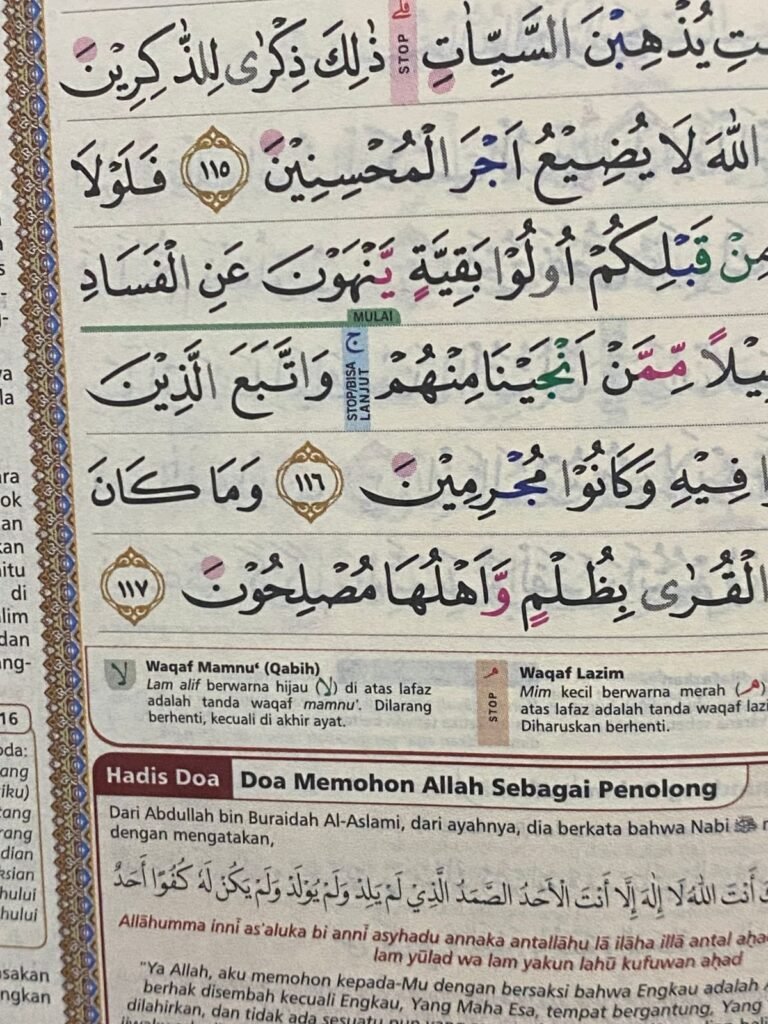 يُذْهِبْنَ السَّيِّاٰتِۗ ذٰلِكَ ذِكْرٰى لِلذّٰكِرِيْنَ
قلى
STOP
اللّٰهَ لَا يُضِيْعُ اَجْرَ الْمُحْسِنِيْنَ ١١٥ فَلَوْلَا
مِنْ قَبْلِكُمْ اُولُوْا بَقِيَّةٍ يَّنْهَوْنَ عَنِ الْفَسَادِ
MULAI
مِّمَّنْ اَنْجَيْنَا مِنْهُمْ ج وَاتَّبَعَ الَّذِيْنَ
STOP/BISA LANJUT
فِيْهِ وَكَانُوْا مُجْرِمِيْنَ ١١٦ وَمَا كَانَ
الْقُرٰى بِظُلْمٍ وَّاَهْلُهَا مُصْلِحُوْنَ ١١٧
Waqaf Mamnu‘ (Qabih)
Lam alif berwarna hijau (لا) di atas lafaz
adalah tanda waqaf mamnu‘. Dilarang
berhenti, kecuali di akhir ayat.
STOP
Waqaf Lazim
Mim kecil berwarna merah (مـ)
atas lafaz adalah tanda waqaf
Diharuskan berhenti.
Hadis Doa
Doa Memohon Allah Sebagai Penolong
Dari Abdullah bin Buraidah Al-Aslami, dari ayahnya, dia berkata bahwa Nabi ﷺ
dengan mengatakan,
أَنْتَ اللّٰهُ لَا إِلٰهَ إِلَّا أَنْتَ الْأَحَدُ الصَّمَدُ الَّذِيْ لَمْ يَلِدْ وَلَمْ يُوْلَدْ وَلَمْ يَكُنْ لَهُ كُفُوًا أَحَدٌ
Allāhumma innī as'aluka bi annī asyhadu annaka antallāhu lā ilāha illā antal
lam yūlad wa lam yakun lahū kufuwan aḥad
"Ya Allah, aku memohon kepada-Mu dengan bersaksi bahwa Engkau adalah
berhak disembah kecuali Engkau, Yang Maha Esa, tempat bergantung, Yang
dilahirkan, dan tidak ada sesuatu pun yang